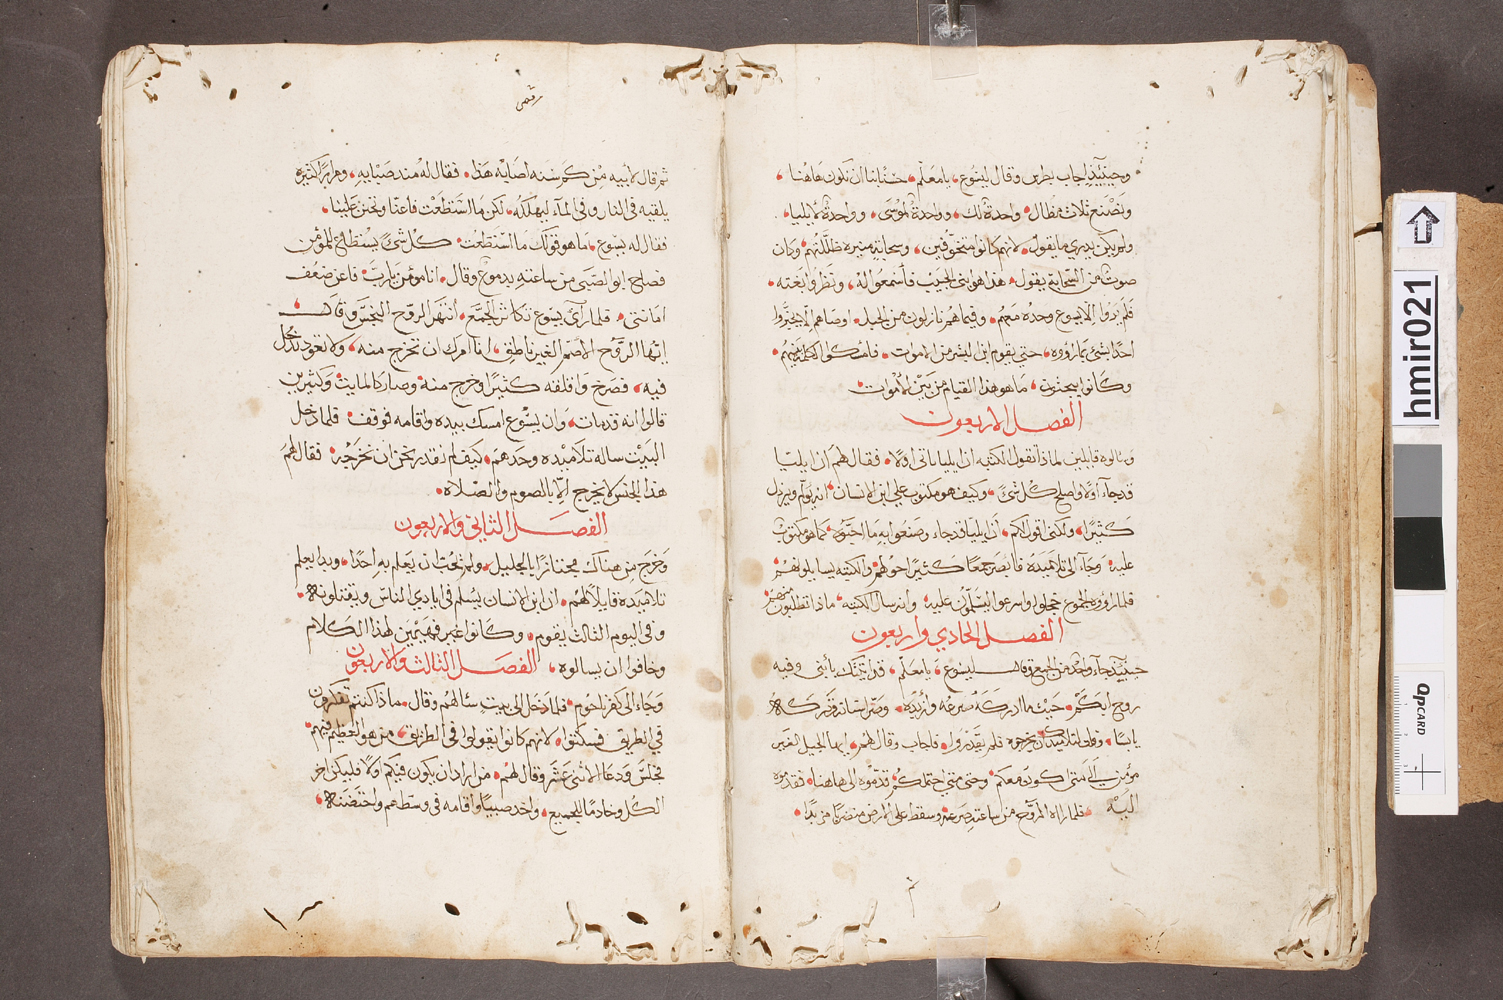 وحينيذٍ اجاب بطرس وقال ليسوع يا معلم حسنٌ لنا ان نكون هاهنا
ونصنع ثلاث مظال واحدة لك وواحدة لموسى وواحدة لايليا
ولم يكن يدري ما يقول لانهم كانوا متخوفين وسحابة منيره ظللتهم وكان
صوت من السحابة يقول هذا هو ابني الحبيب فأسمعوا له ونظروا بغته
فلم يروا الا يسوع وحده معهم وفيما هم نازلون من الجبل اوصاهم الا يخبروا
احدًا بشئ مما راووه حتى يقوم ابن البشر من الاموات فامسكوا الكلمة فيهم
وكانوا يبحثون ما هو هذا القيام من بين الاموات
الفصل الاربعون
وسالوه قايلين لماذا تقول الكتبه ان ايليا ياتي اولًا فقال لهم ان ايليا
قد جاء اولًا واصلح كل شئ وكيف هو مكتوب علي ابن الانسان انه يولم ويرذل
كثيرًا ولكني اقول لكم ان ايليا قد جاء وصنعوا به ما احبوه كما هو مكتوب
عليه وجاء الى تلاميذه فابصر جمعًا كثيرًا حولهم والكتبه يسايلونهم
فلما راووه الجموع خجلوا واسرعوا ليسلمون عليه وانه سال الكتبه ماذا تطلبون منهم
الفصل الحادي واربعون
حينيذٍ جاء واحد من الجمع وقال ليسوع يا معلم قد اتيتك بأبني وفيه
روح ابكم حيث ما ادركه صرعه وازبده وصر اسنانه فتركه
يابسًا وقلت لتلاميذك ان يخرجوه فلم يقدروا فاجاب وقال لهم ايها الجيل الغير
مؤمن الى متى اكون معكم وحتى متى احتملكم قدموه الى هاهنا فقدموه
اليه فلما راه الروح من ساعته صرعه وسقط على الارض مضطربًا مزبدًا
ثم قال لابيه من كم سنه اصابه هذا فقال له منذ صبايه ومرارًا كثيره
يلقيه في النار وفي الماء ليهلكه لكن ما استطعت فاعنا وتحنن علينا
فقال له يسوع ما هو قولك ما استطعت كل شئ يستطاع للمؤمن
فصاح ابو الصبي من ساعته بدموع وقال انا مومن يا رب فاعن ضعف
امانتي فلما رآى يسوع تكاثر الجمع أنتهر الروح النجس وقال
ايها الروح الاصم الغير ناطق انا امرك ان تخرج منه ولا تعود تدخل
فيه فصرخ واقلقه كثيرًا وخرج منه وصار كالمايت وكثيرين
قالوا انه قد مات وان يسوع امسك بيده واقامه فوقف فلما دخل
البيت ساله تلاميذه وحدهم كيف لم نقدر نحن ان نخرجه فقال لهم
هذا الجنس لا يخرج الا بالصوم والصلاه
الفصل الثاني والاربعون
وخرج من هناك مجتازًا بالجليل ولم يحب ان يعلم به احدًا وبدا يعلم
تلاميذه قايلًا لهم ان ابن الانسان يسلم في ايادي الناس ويقتلونه
وفي اليوم الثالث يقوم وكانوا غير فهيمين لهذا الكلام
وخافوا ان يسالوه الفصل الثالث والاربعون
وجاء الى كفرناحوم فلما دخل الى بيتٍ سئالهم وقال ماذا كنتم تفكرون
في الطريق فسكتوا لانهم كانوا يقولوا في الطريق من هو العظيم فيهم
فجلس ودعا الاثنى عشر وقال لهم من اراد ان يكون فيكم اولًا فليكن اخر
الكل وخادمًا للجميع واخد صبيًا واقامه في وسطهم واحتضنه
hmir021
QPCARD